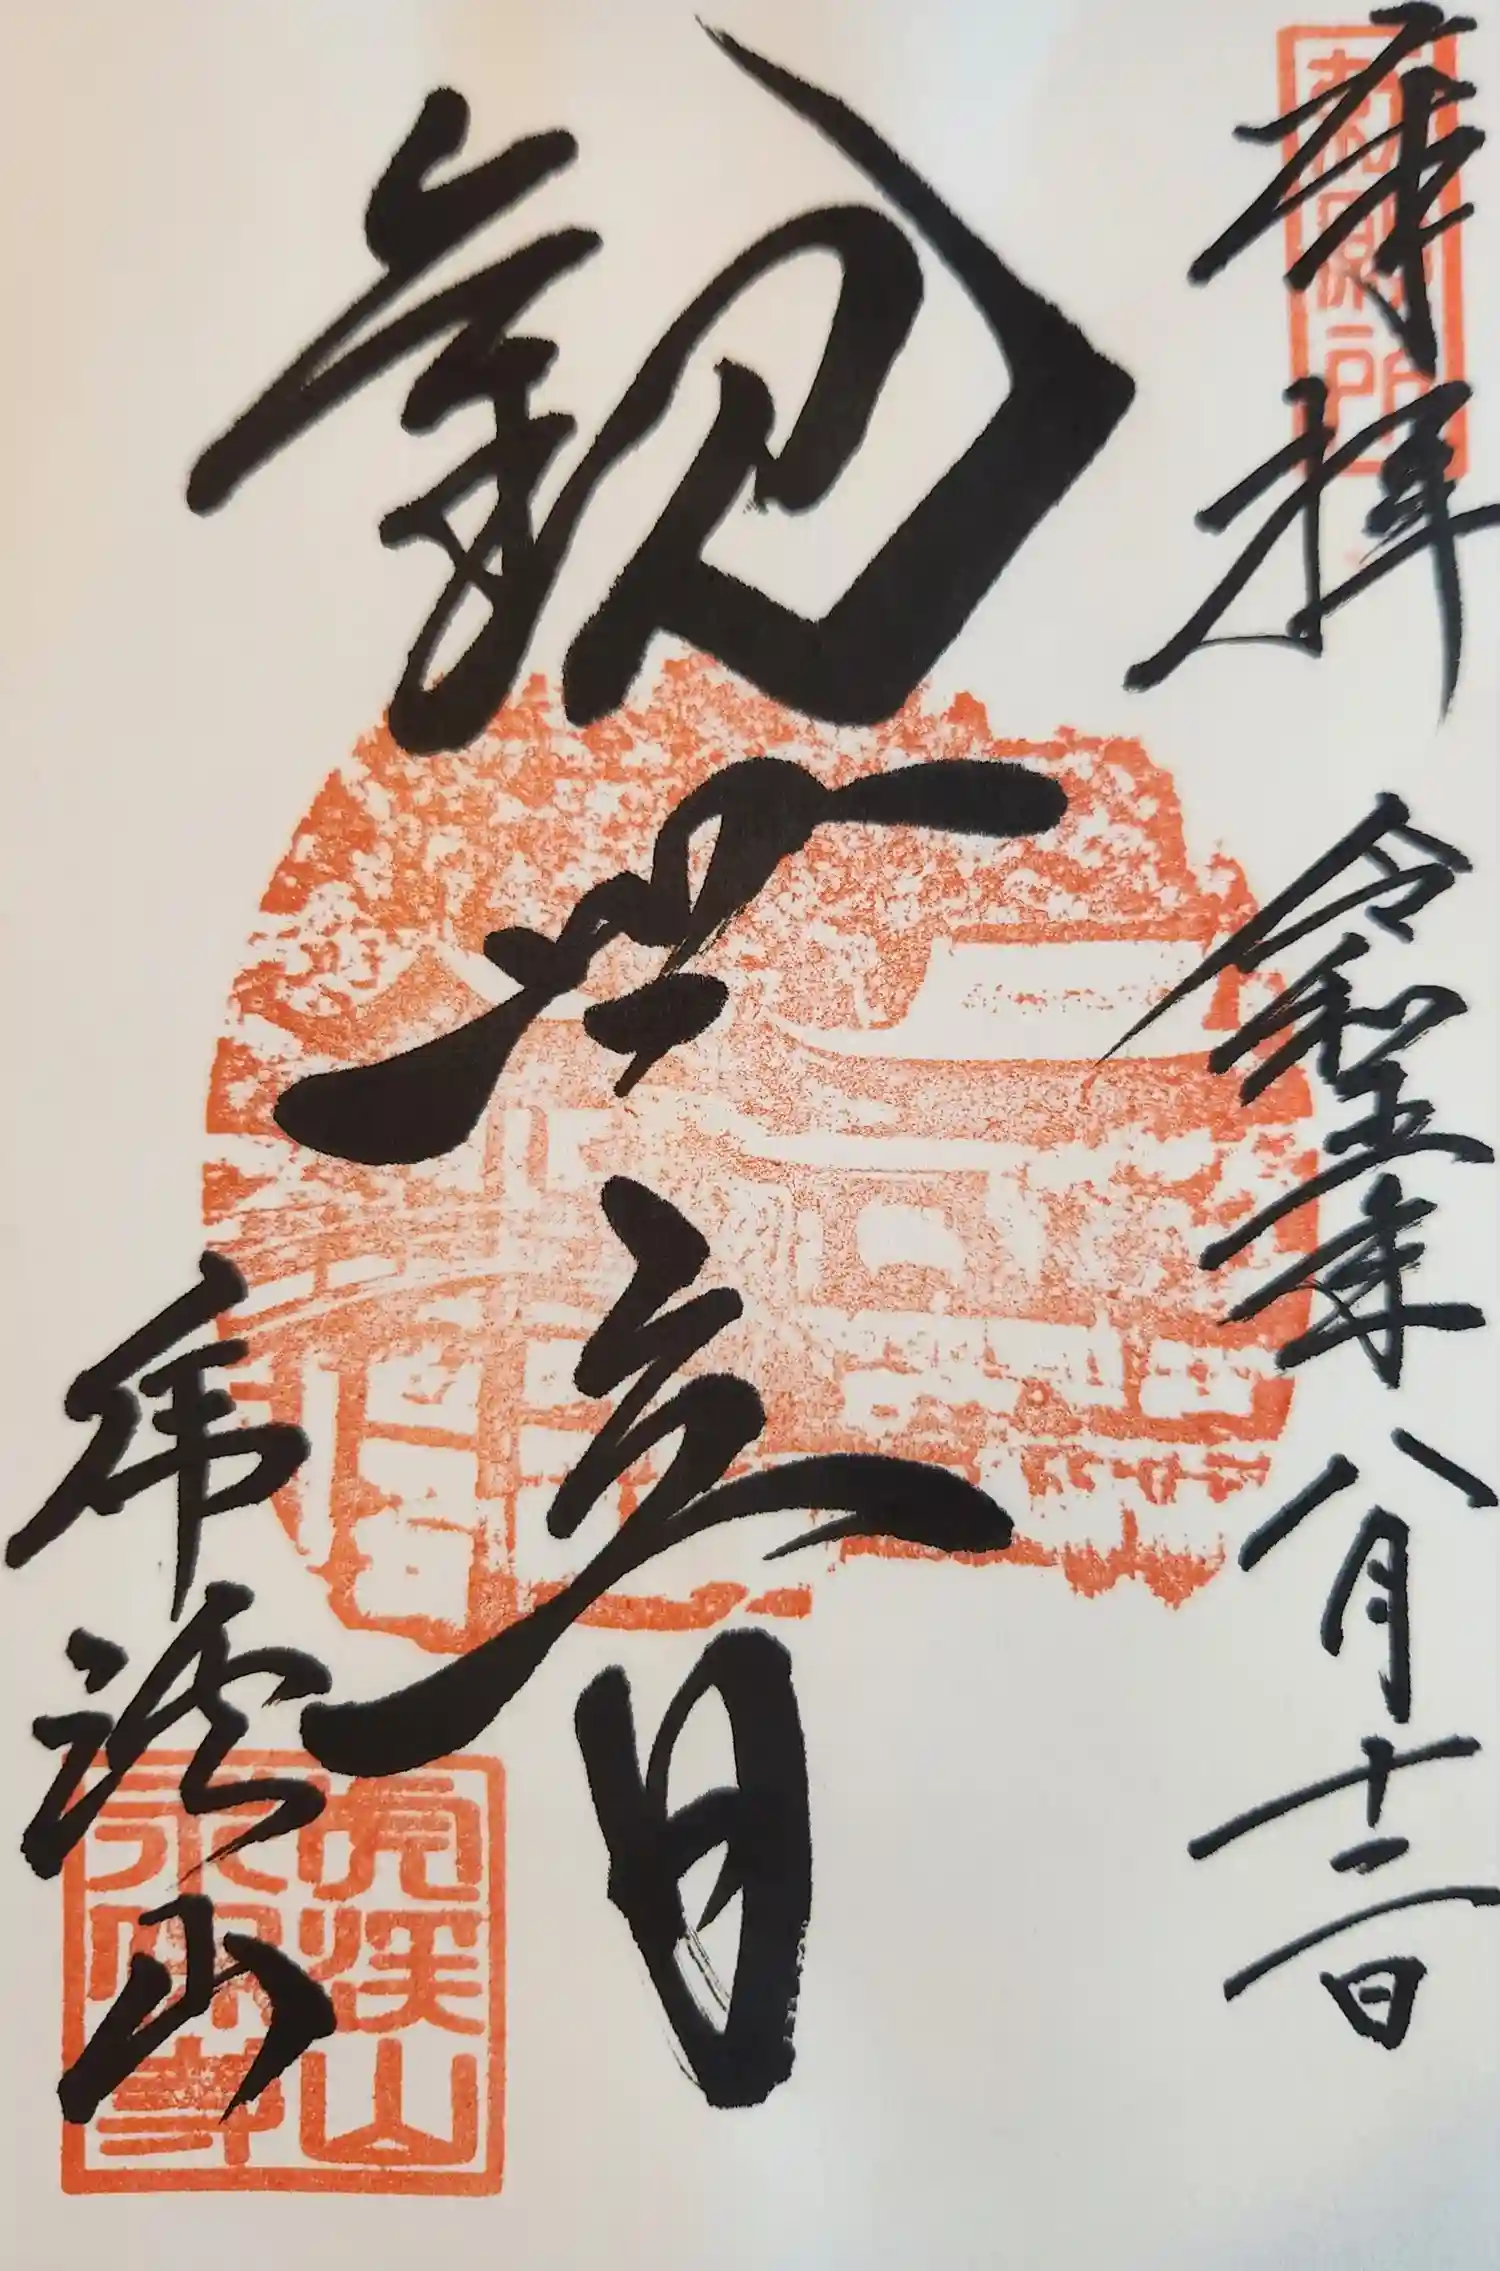 奉拝 令和五年八月十二日
観世音
虎渓山
虎渓山
永保寺